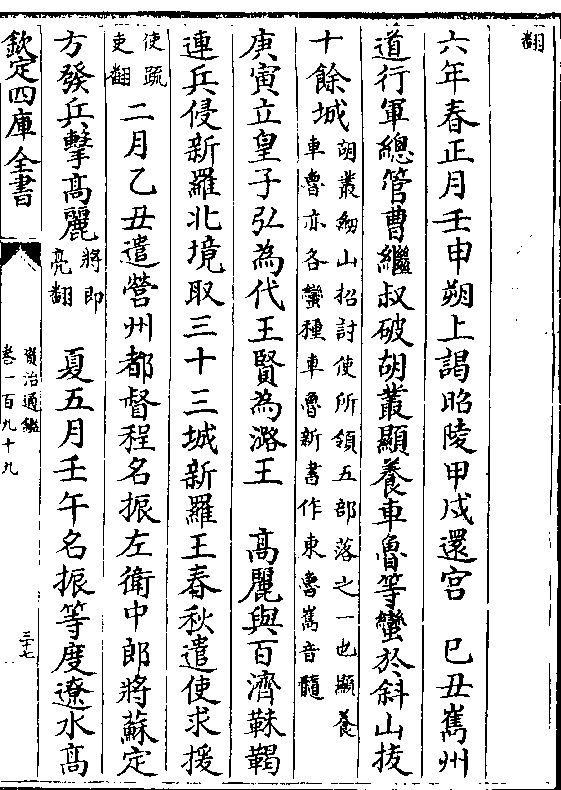 翻
六年春正月壬申朔上謁昭陵甲戍還宫　己丑巂州
道行軍總管曹繼叔破胡叢顯養車魯等蠻於斜山拔
十餘城
胡叢劒山招討使所領五部落之一也顯養
車魯亦各蠻種車魯新書作東魯巂音髓
庚寅立皇子弘為代王賢為潞王　高麗與百濟靺鞨
連兵侵新羅北境取三十三城新羅王春秋遣使求援
使疏
吏翻
二月乙丑遣營州都督程名振左衛中郎將蘇定
方發兵擊高麗
將即
亮翻
夏五月壬午名振等度遼水高
欽定四庫全書
資治通鑑
卷一百九十九
三十七